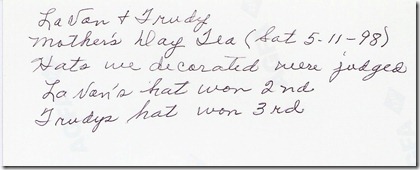 LaVon & Trudy
Mother's Day Tea (Sat 5-11-98)
Hats we decorated were judged
LaVon's hat won 2nd
Trudys hat won 3rd